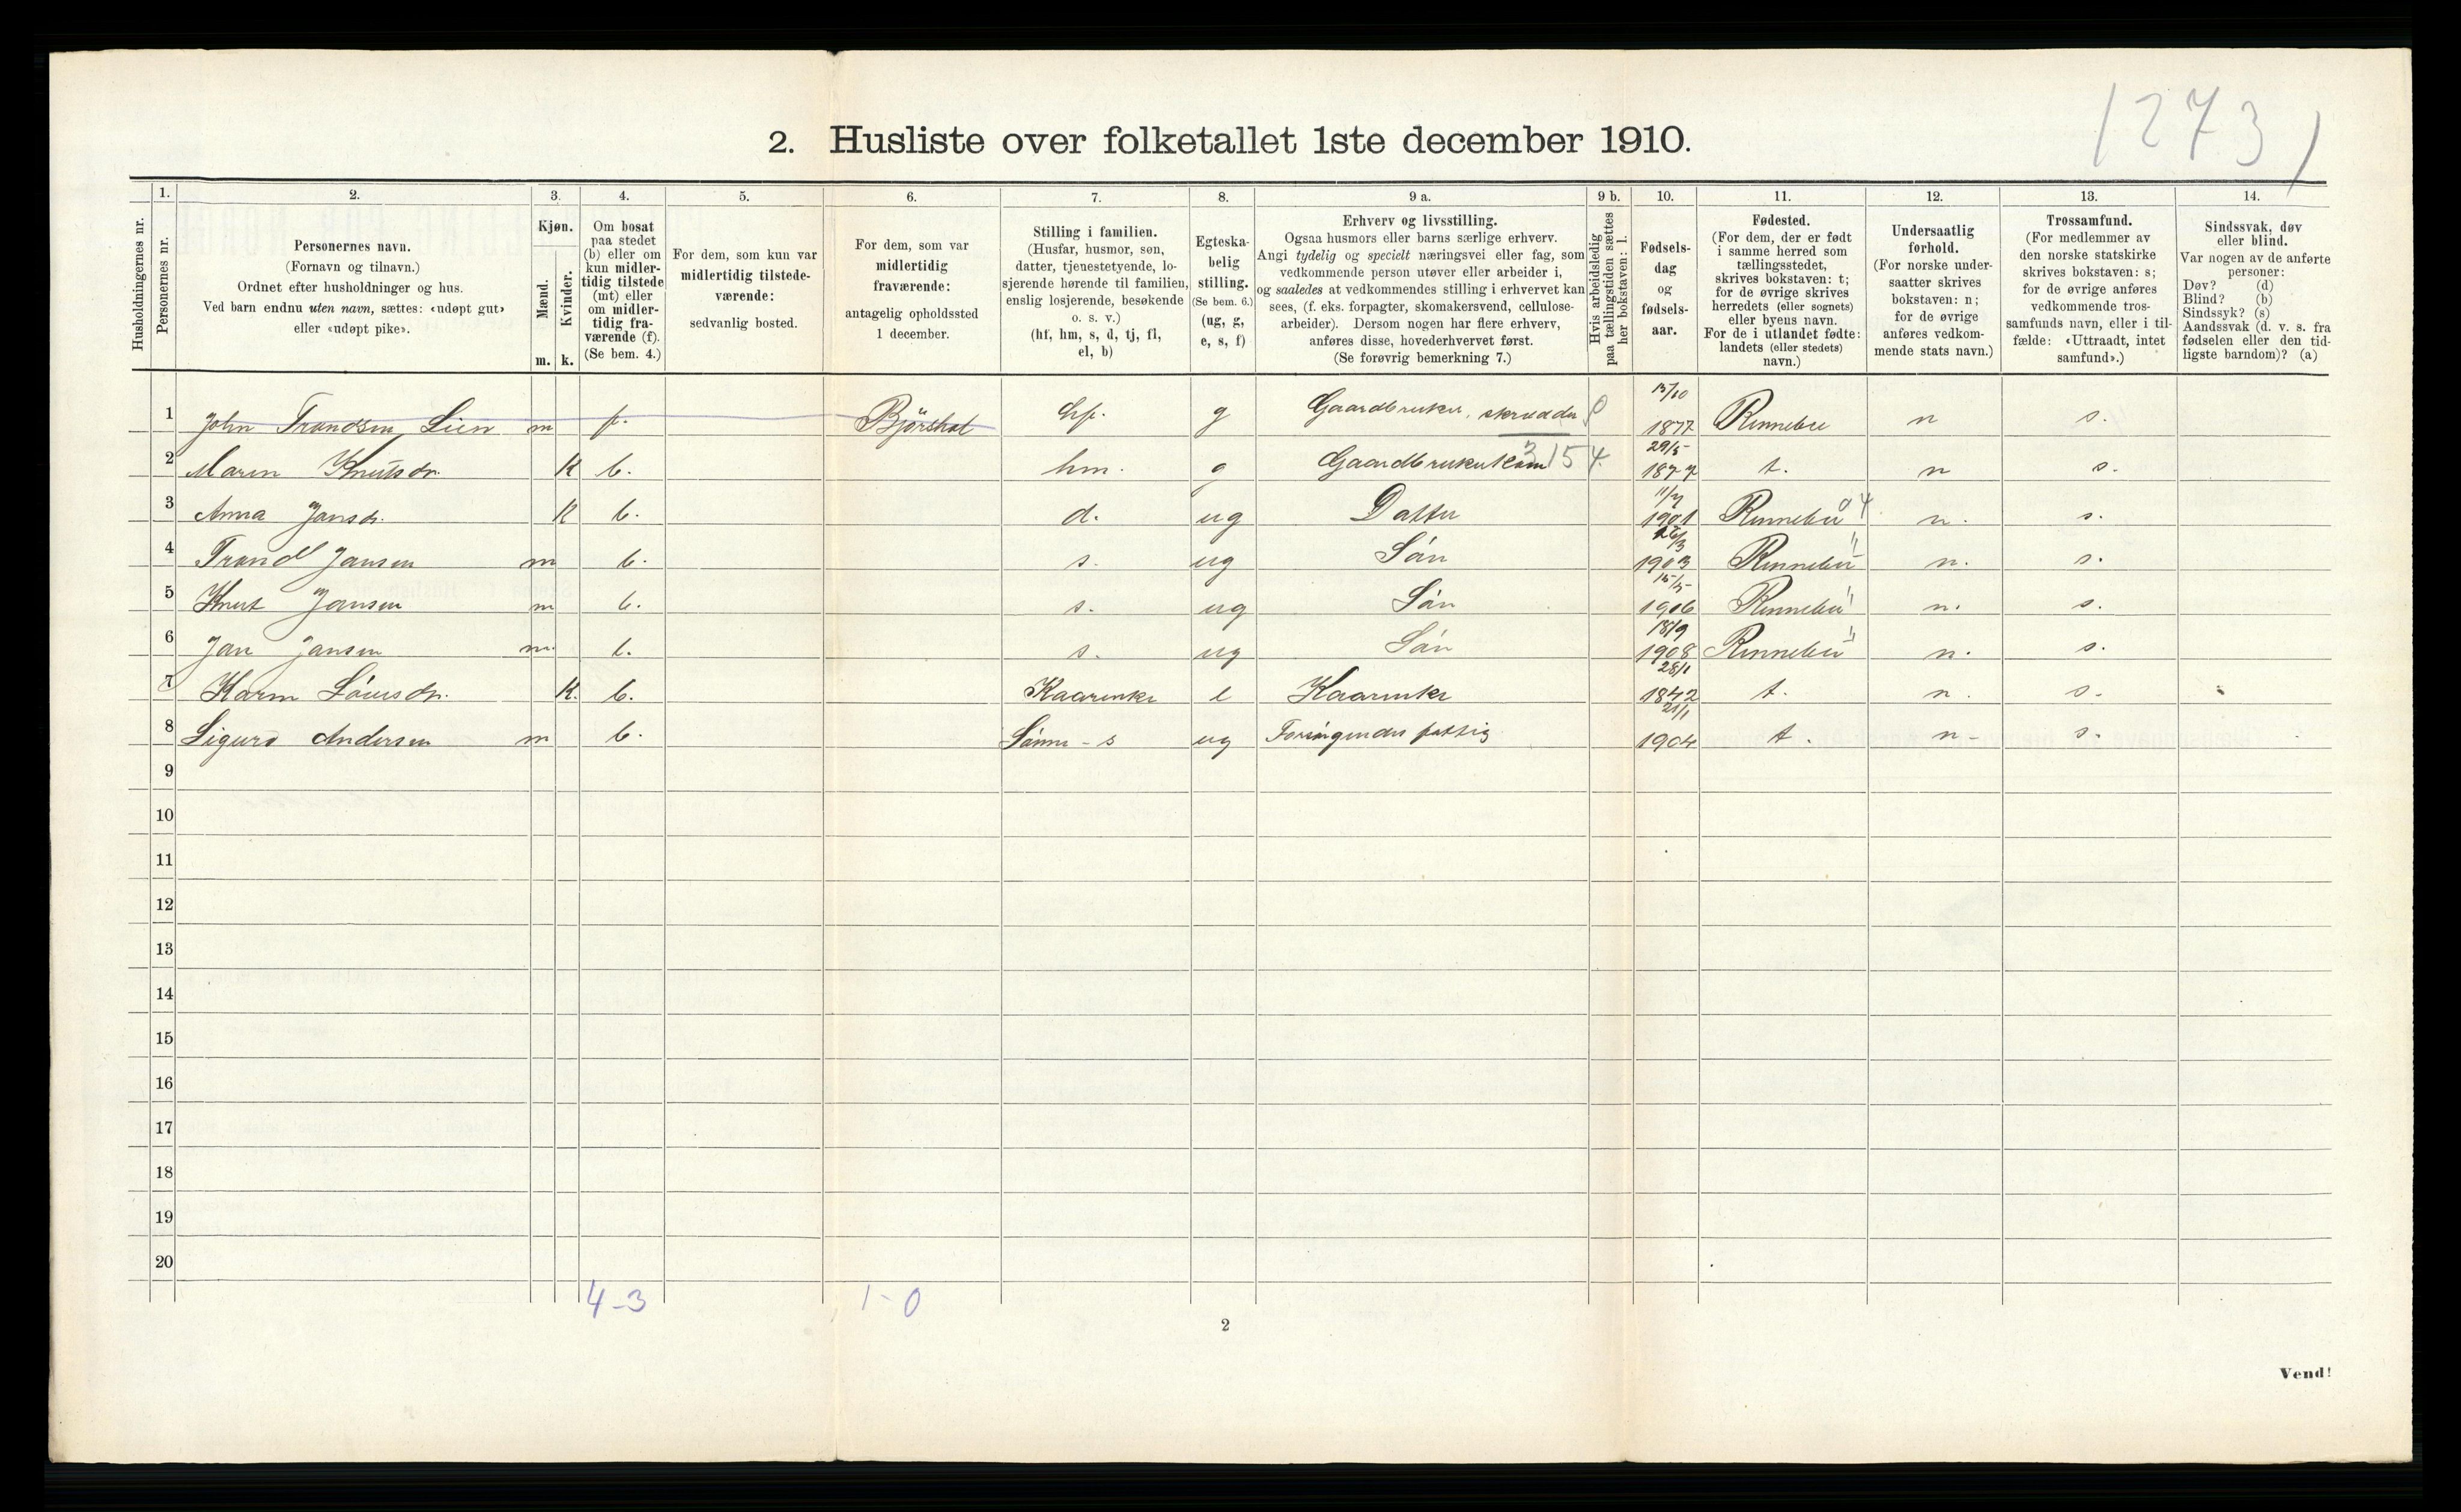 1273 /
2. Husliste over folketallet 1ste december 1910.
1. 2. 3. 4. 5. 6. 7. 8. 9 a. 9 b. 10. 11. 12. 13. 14.
Husholdningernes nr.
Personernes nr.
Personernes navn.
(Fornavn og tilnavn.)
Ordnet efter husholdninger og hus.
Ved barn endnu uten navn, sættes: «udøpt gut»
eller «udøpt pike».
Kjøn.
Mænd.
Kvinder.
m. k.
Om bosat
paa stedet
(b) eller om
kun midler-
tidig tilstede
(mt) eller
om midler-
tidig fra-
værende (f).
(Se bem. 4.)
For dem, som kun var
midlertidig tilstede-
værende:
sedvanlig bosted.
For dem, som var
midlertidig
fraværende:
antagelig opholdssted
1 december.
Stilling i familien.
(Husfar, husmor, søn,
datter, tjenestetyende, lo-
sjerende hørende til familien,
enslig losjerende, besøkende
o. s. v.)
(hf, hm, s, d, tj, fl,
el, b)
Egteska-
belig
stilling.
(Se bem. 6.)
(ug, g,
e, s, f)
Erhverv og livsstilling.
Ogsaa husmors eller barns særlige erhverv.
Angi tydelig og specielt næringsvei eller fag, som
vedkommende person utøver eller arbeider i,
og saaledes at vedkommendes stilling i erhvervet kan
sees, (f. eks. forpagter, skomakersvend, cellulose-
arbeider). Dersom nogen har flere erhverv,
anføres disse, hovederhvervet først.
(Se forøvrig bemerkning 7.)
Hvis arbeidsledig
paa tællingstiden sættes
her bokstaven: l.
Fødsels-
dag
og
fødsels-
aar.
Fødested.
(For dem, der er født
i samme herred som
tællingsstedet,
skrives bokstaven: t;
for de øvrige skrives
herredets (eller sognets)
eller byens navn.
For de i utlandet fødte:
landets (eller stedets)
navn.)
Undersaatlig
forhold.
(For norske under-
saatter skrives
bokstaven: n;
for de øvrige
anføres vedkom-
mende stats navn.)
Trossamfund.
(For medlemmer av
den norske statskirke
skrives bokstaven: s;
for de øvrige anføres
vedkommende tros-
samfunds navn, eller i til-
fælde: «Uttraadt, intet
samfund».)
Sindssvak, døv
eller blind.
Var nogen av de anførte
personer:
Døv? (d)
Blind? (b)
Sindssyk? (s)
Aandssvak (d. v. s. fra
fødselen eller den tid-
ligste barndom)? (a)
1 John Trondsen Lien m f. Björskol hf. g Gaardbruker, skrædder 0 13/10 1877 Rennebu n s.
2 Maren Knutsdr. K b. hm. g Gaardbrukerkone 3154. 29/5 1877 t. n s.
3 Anna Jansdr. K b. d. ug Datter 11/7 1901 Rennebu 04 n. s.
4 Trond Jansen m b. s. ug Sön 26/3 1903 Rennebu " n. s.
5 Knut Jansen m b. s. ug Sön 15/5 1906 Rennebu " n. s.
6 Jan Jansen m. b. s. ug Sön 18/9 1908 Rennebu " n. s.
7 Karen K. b. Kaarenke e Kaarenke 28/1 1842 t. n. s.
8 Sigurd Andersen m b. s ug fattig 21/1 1904 t. n s.
9
10
11
12
13
14
15
16
17
18
19
20
4-3 1-0
2
Vend!